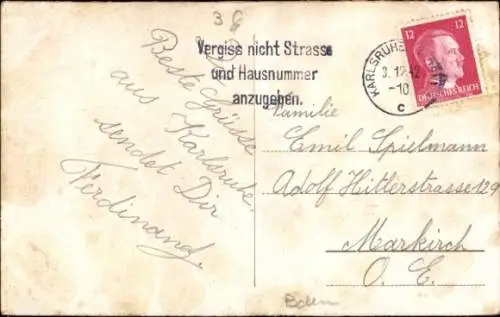 3 8
Vergiss nicht Strasse
und Hausnummer
anzugeben.
KARLSRUHE
3.12.42
-10
c
12 12
DEUTSCHES REICH
Beste Grüsse
aus Karlsruhe
sendet Dir
Ferdinand.
Familie
Emil Spielmann
Adolf Hitlerstrasse 129
Markirch
O. E.